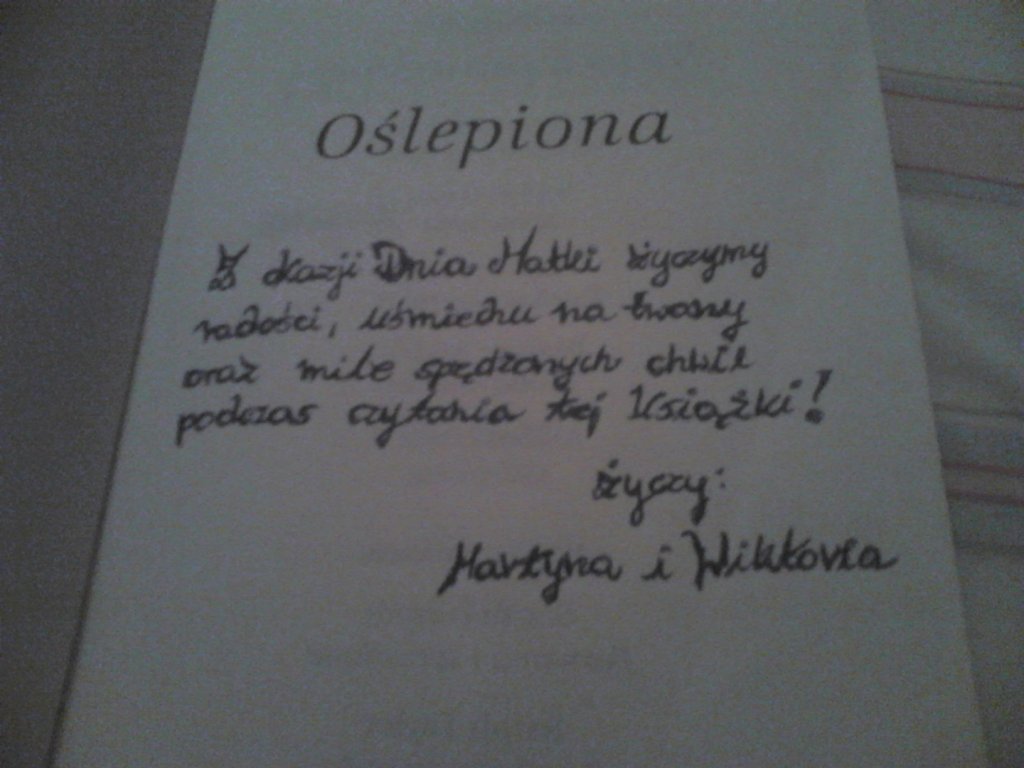 Oślepiona
Z okazji Dnia Matki życzymy
radości, uśmiechu na twarzy
oraz mile spędzonych chwil
podczas czytania tej książki!
życzy:
Martyna i Wiktoria